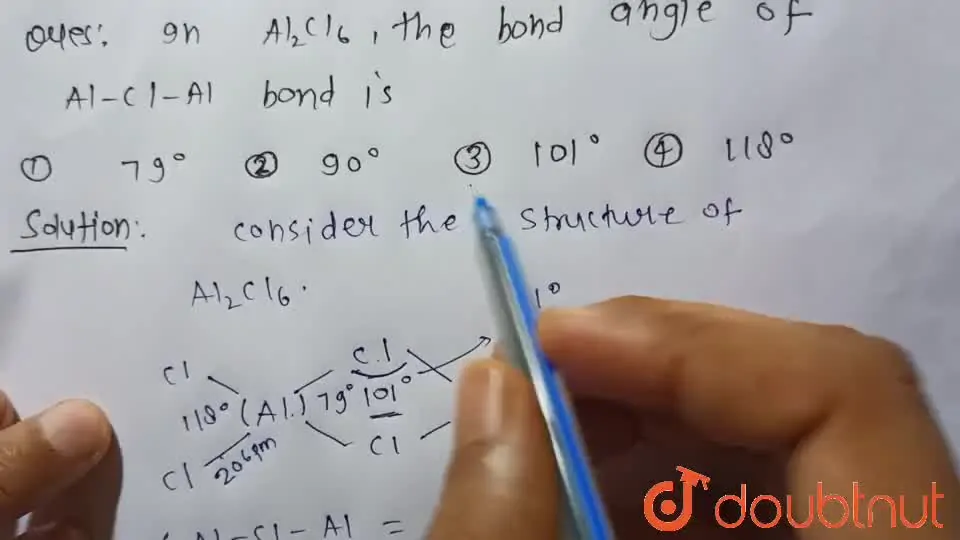 Ques: In Al2Cl6, the bond angle of
Al-Cl-Al bond is
① 79° ② 90° ③ 101° ④ 118°
Solution: consider the structure of
Al2Cl6.
1°
Cl Cl
118° (Al) 79° 101°
Cl 206pm Cl
Al-Cl-Al =
doubtnut